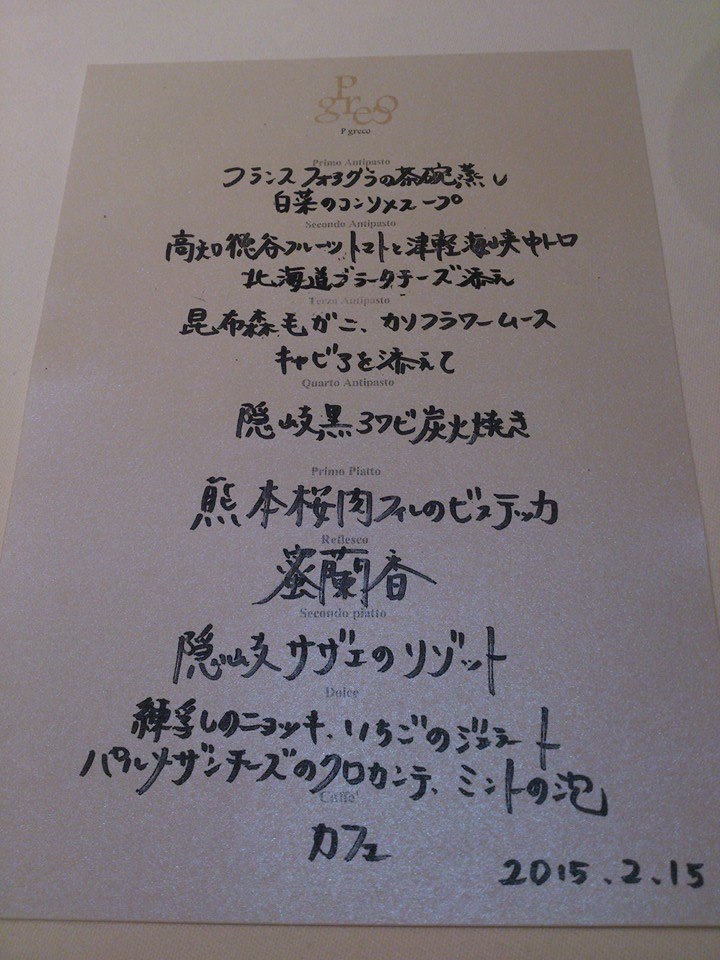 P greco
P greco
Primo Antipasto
フランスフォアグラの茶碗蒸し
白菜のコンソメスープ
Secondo Antipasto
高知徳谷フルーツトマトと津軽海峡中トロ
北海道ブラータチーズ添え
Terzo Antipasto
昆布森毛がに、カリフラワームース
キャビアを添えて
Quarto Antipasto
隠岐黒アワビ炭火焼き
Primo Piatto
熊本桜肉フィレのビステッカ
Reflesco
蜜蘭香
Secondo piatto
隠岐サザエのリゾット
Dolce
練乳のニョッキ、いちごのジェラート
パルメザンチーズのクロカンテ、ミントの泡
Caffe'
カフェ
2015.2.15